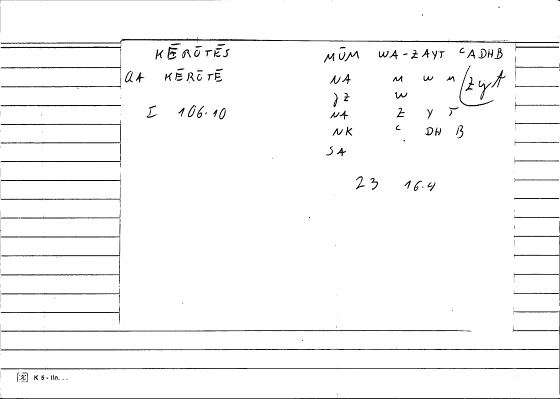 KĒRŪTĒS
QA KĒRŪTĒ
I 106.10
MŪM WA-ZAYT ʿADHB
NA M W M
ZYT
GZ W
NA Z Y T
NK ʿ DH B
SA
23 16.4